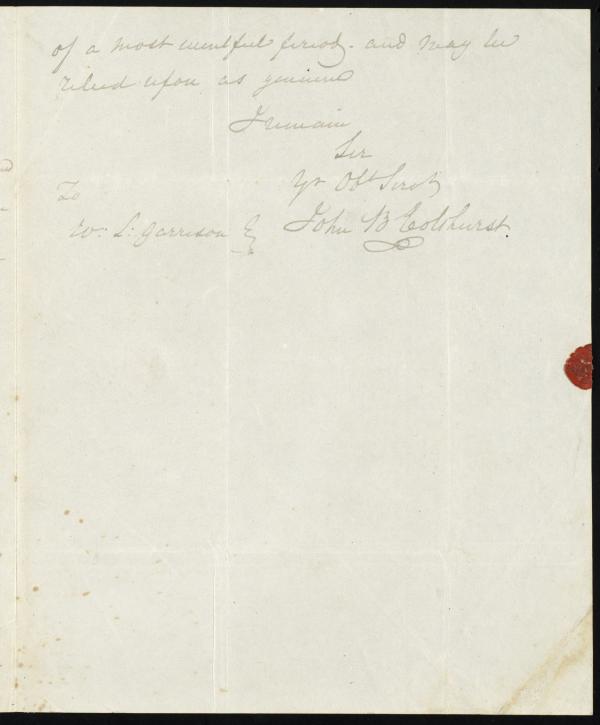 of a most eventful period. and may be
relied upon as genuine
I remain
Sir
Yr Obt Servt
To
Wm L. Garrison E
John B Colthurst